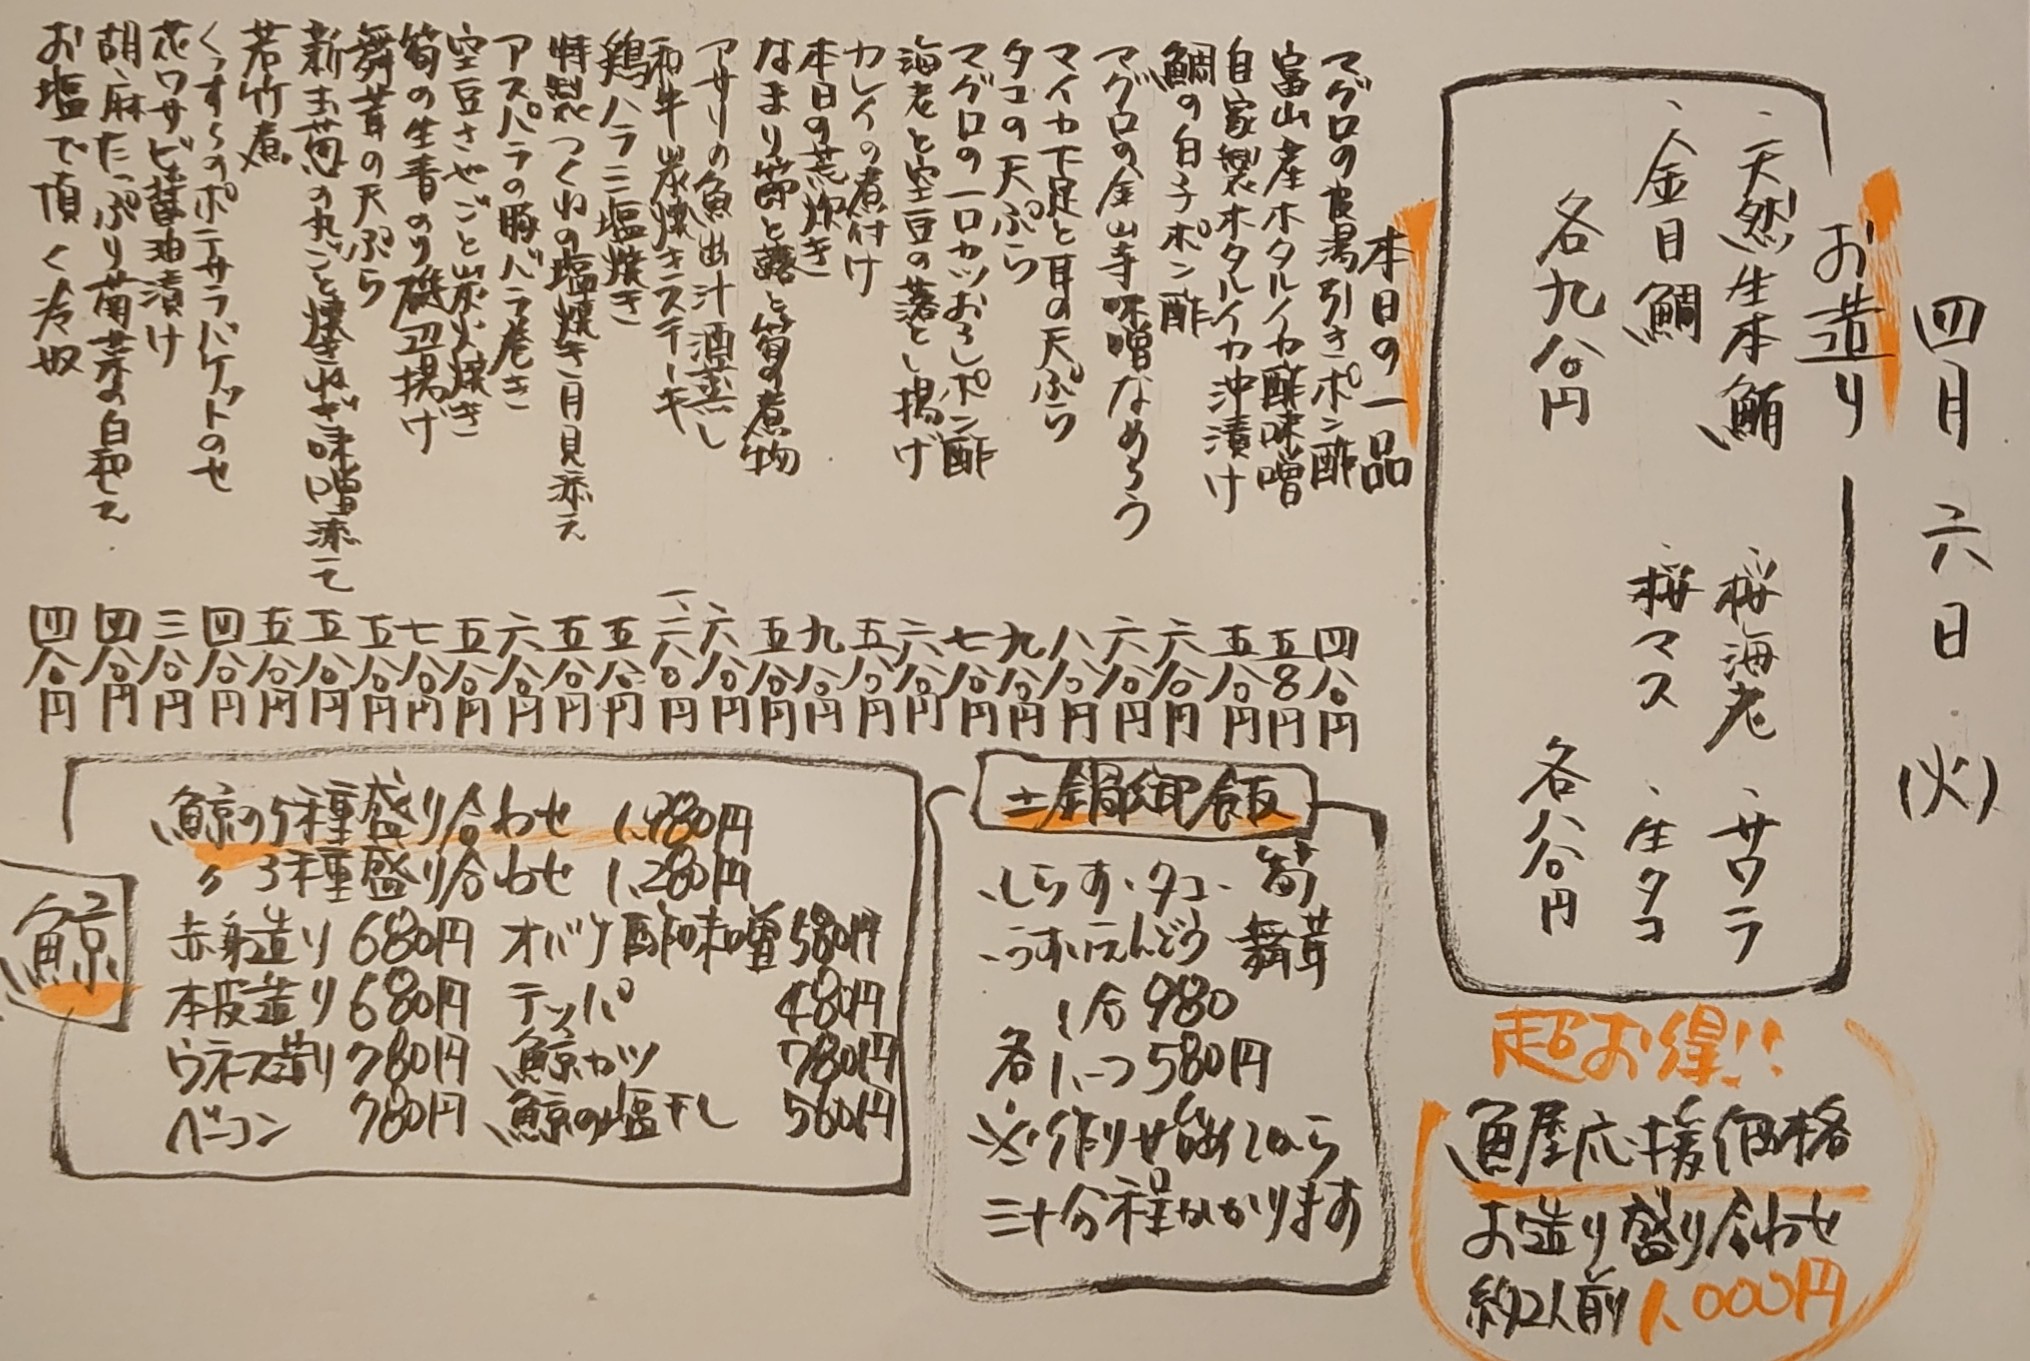 四月六日(火)
お造り
、天然生本鮪
、桜海老
、サワラ
、金目鯛
、桜マス
、生タコ
各九八〇円
各八八〇円
超お得!!
魚屋応援価格
お造り盛り合わせ
約2人前 1,000円
本日の一品
マグロの皮湯引きポン酢 四八〇円
富山産ホタルイカ酢味噌 五八〇円
自家製ホタルイカ沖漬け 五八〇円
鯛の白子ポン酢 六八〇円
マグロの金山寺味噌なめろう 六八〇円
マイカ下足と耳の天ぷら 八八〇円
タコの天ぷら 九八〇円
マグロの一口カツおろしポン酢 七八〇円
海老と空豆の落とし揚げ 六八〇円
カレイの煮付け 五八〇円
本日の荒炊き 九八〇円
なまり節と蕗と筍の煮物 五八〇円
アサリの魚出汁酒蒸し 六八〇円
和牛炭焼きステーキ 一、二八〇円
鶏ハラミ塩焼き 五八〇円
特製つくねの塩焼き月見添え 五八〇円
アスパラの豚バラ巻き 六八〇円
空豆さやごと炭火焼き 五八〇円
筍の生青のり磯辺揚げ 七八〇円
舞茸の天ぷら 五八〇円
新玉葱の丸ごと焼きねぎ味噌添えて 五八〇円
若竹煮 五八〇円
くつすらのポテサラバケットのせ 四八〇円
花ワサビ醤油漬け 三八〇円
胡麻たっぷり菊菜の白和え 四八〇円
お塩で頂く冷奴 四八〇円
土鍋御飯
、しらす、タコ、筍
、うすいえんどう 舞茸
1合 980
各 1、一つ 580円
※作り始めてから
三十分程かかります
鯨
鯨の5種盛り合わせ 1,980円
〃 3種盛り合わせ 1,280円
赤身造り 680円 オバケ酢味噌 580円
本皮造り 680円 テッパ 480円
ウネス造り 780円 鯨カツ 780円
ベーコン 780円 鯨の塩干し 560円